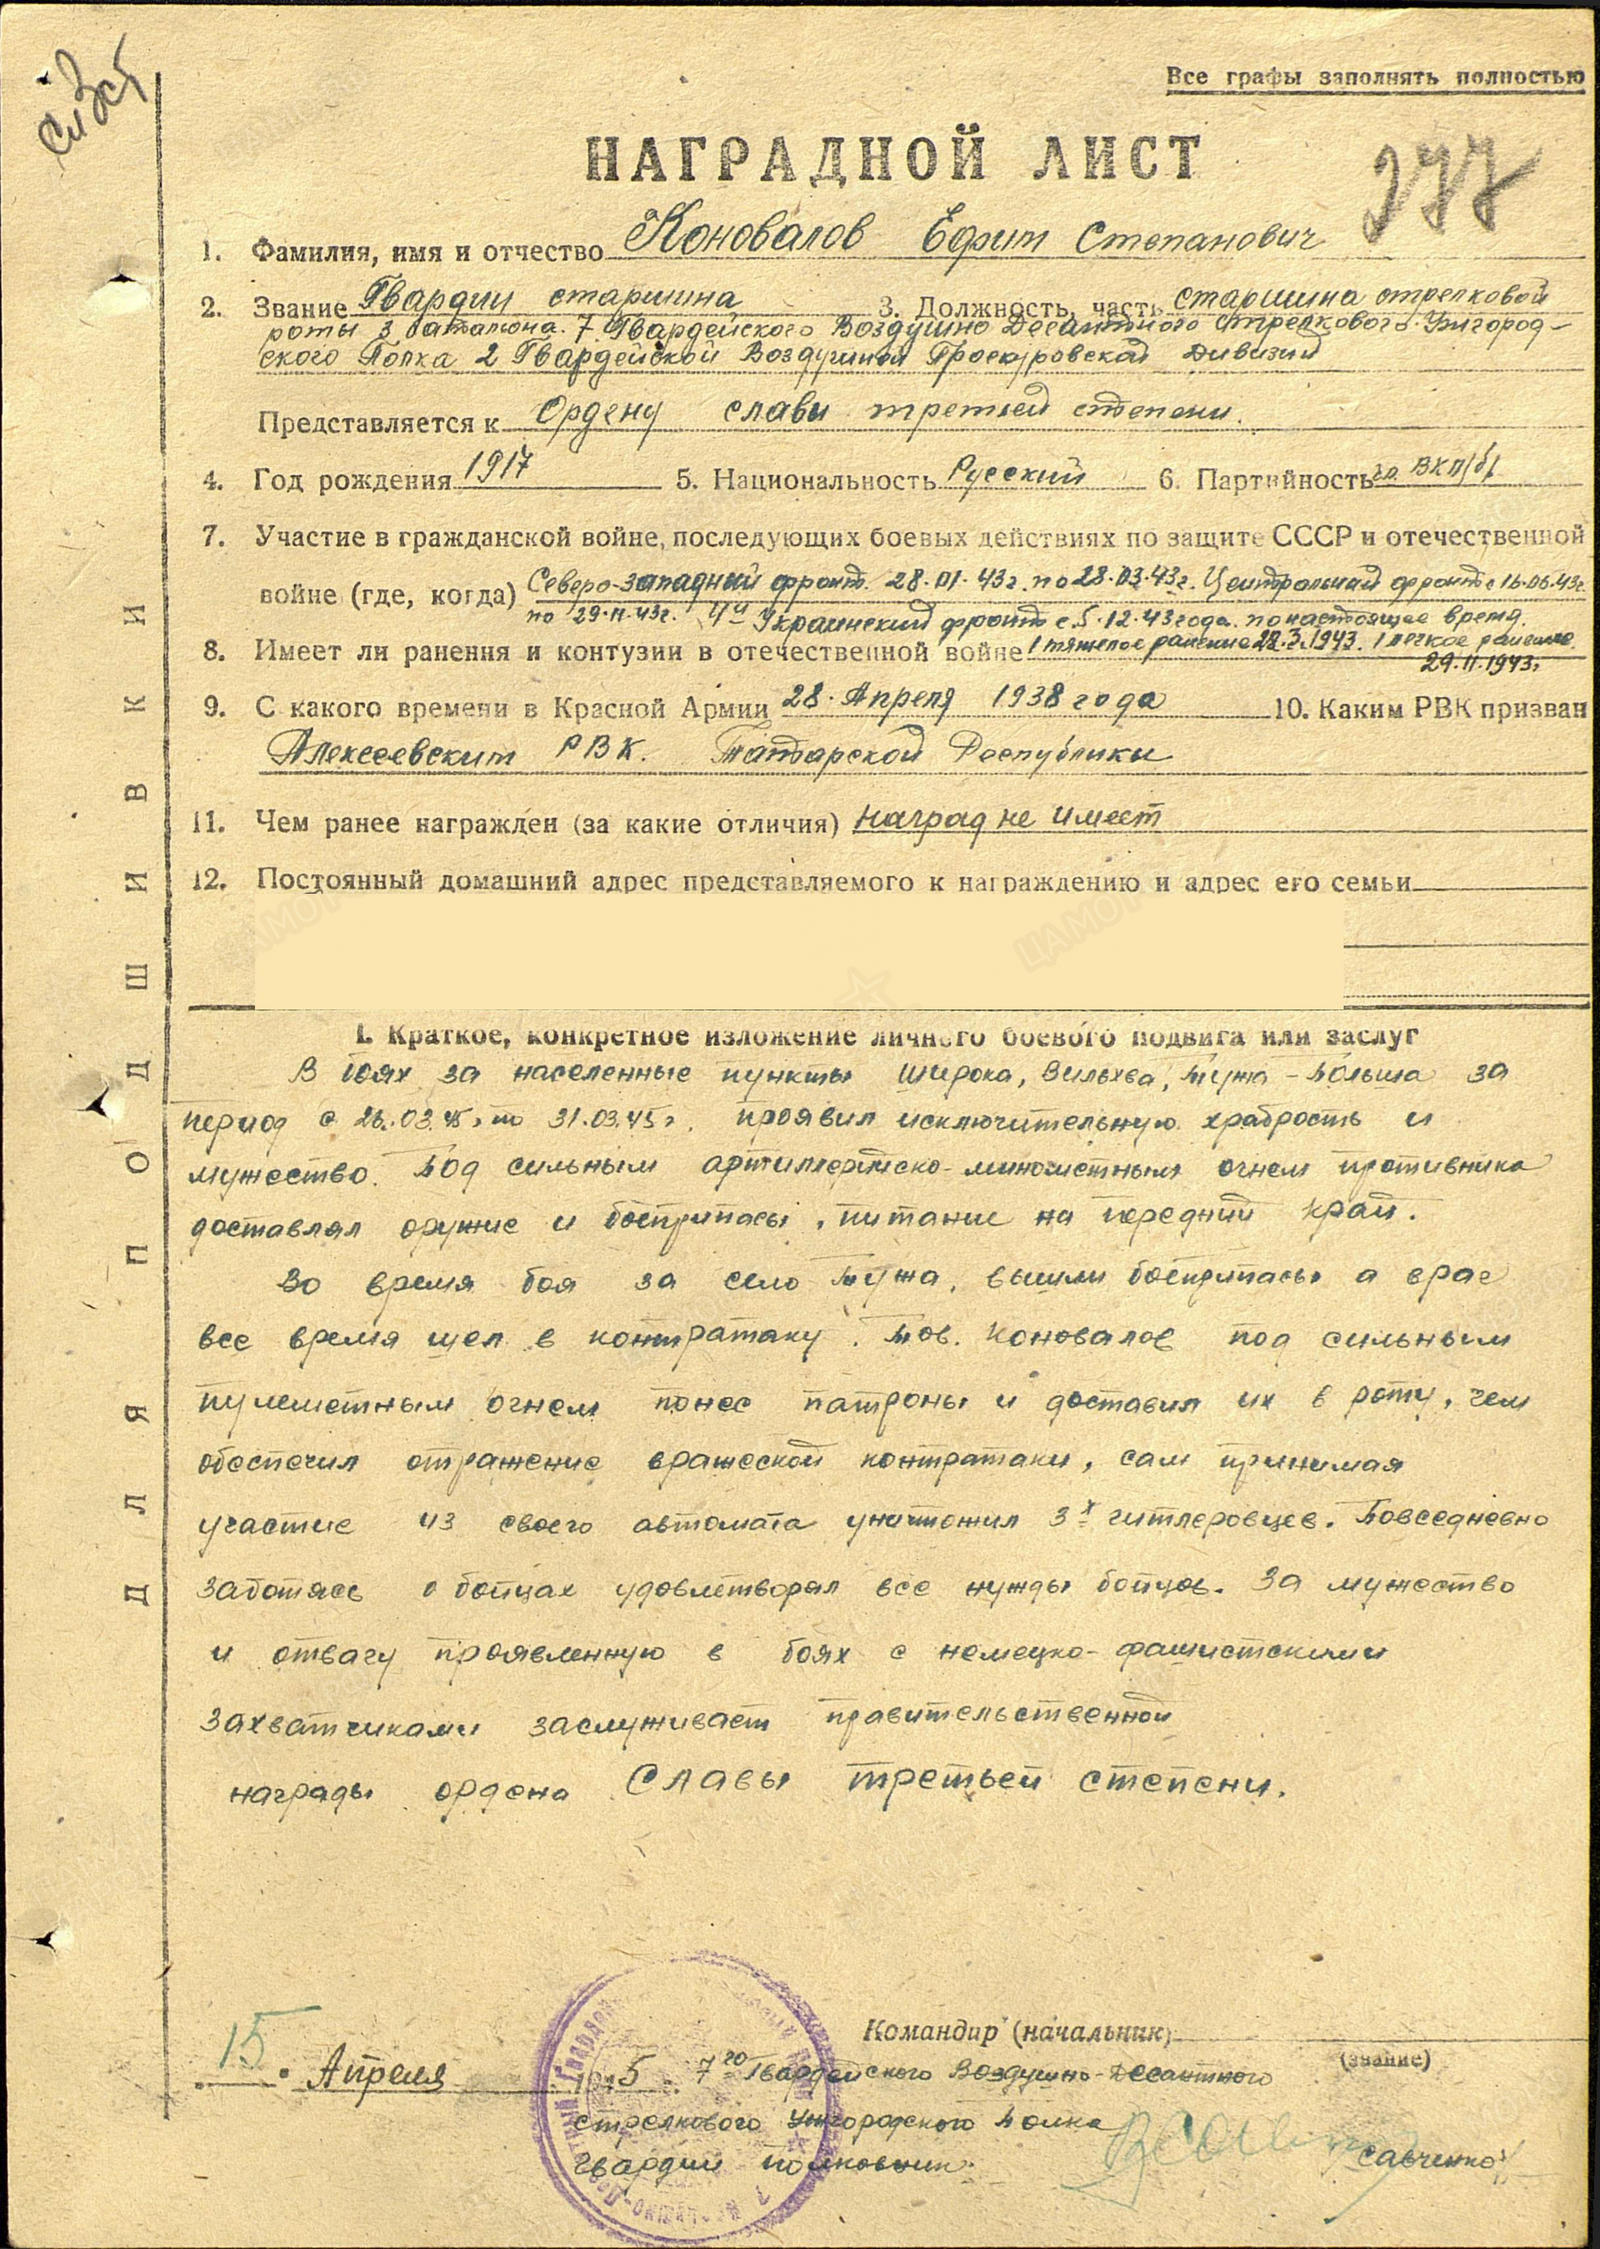 Сл 3ст
Все графы заполнять полностью
НАГРАДНОЙ ЛИСТ
277
1. Фамилия, имя и отчество Коновалов Ефим Степанович
2. Звание Гвардии старшина 3. Должность, часть старшина стрелковой
роты 3 батальона. 7 Гвардейского Воздушно Десантного стрелкового Ужгород-
ского Полка 2 Гвардейской Воздушной Проскуровской Дивизии
Представляется к Ордену славы третьей степени.
4. Год рождения 1917 5. Национальность Русский 6. Партийность ВКП/б/
7. Участие в гражданской войне, последующих боевых действиях по защите СССР и отечественной
войне (где, когда) Северо-западный фронт. 28.01.43г. по 28.03.43г. Центральный фронт с 16.06.43г.
по 29.11.43г. 4й Украинский фронт с 5.12.43 года. по настоящее время.
8. Имеет ли ранения и контузии в отечественной войне 1 тяжелое ранение 28.3.1943. 1 легкое ранение
29.11.1943г.
9. С какого времени в Красной Армии 28. Апреля 1938 года 10. Каким РВК призван
Алексеевским РВК. Татарской Республики
11. Чем ранее награжден (за какие отличия) наград не имеет
12. Постоянный домашний адрес представляемого к награждению и адрес его семьи
I. Краткое, конкретное изложение личного боевого подвига или заслуг
В боях за населенные пункты Широка, Вильхва, за
период с 26.03.45г по 31.03.45г. проявил исключительную храбрость и
мужество. Под сильным артиллерийско-минометным огнем противника
доставлял оружие и боеприпасы, питание на передний край.
Во время боя за село вышли боеприпасы а враг
все время шел в контратаку. Тов. Коновалов под сильным
пулеметным огнем понес патроны и доставил их в роту, чем
обеспечил отражение вражеской контратаки, сам принимая
участие из своего автомата уничтожил 3х гитлеровцев. Повседневно
заботясь о бойцах удовлетворял все нужды бойцов. За мужество
и отвагу проявленную в боях с немецко-фашистскими
захватчиками заслуживает правительственной
награды ордена Славы третьей степени.
ДЛЯ ПОДШИВКИ
Командир (начальник)
(звание)
15. Апреля 1945. 7го Гвардейского Воздушно-Десантного
стрелкового Ужгородского Полка
Гвардии Полковник Савченко